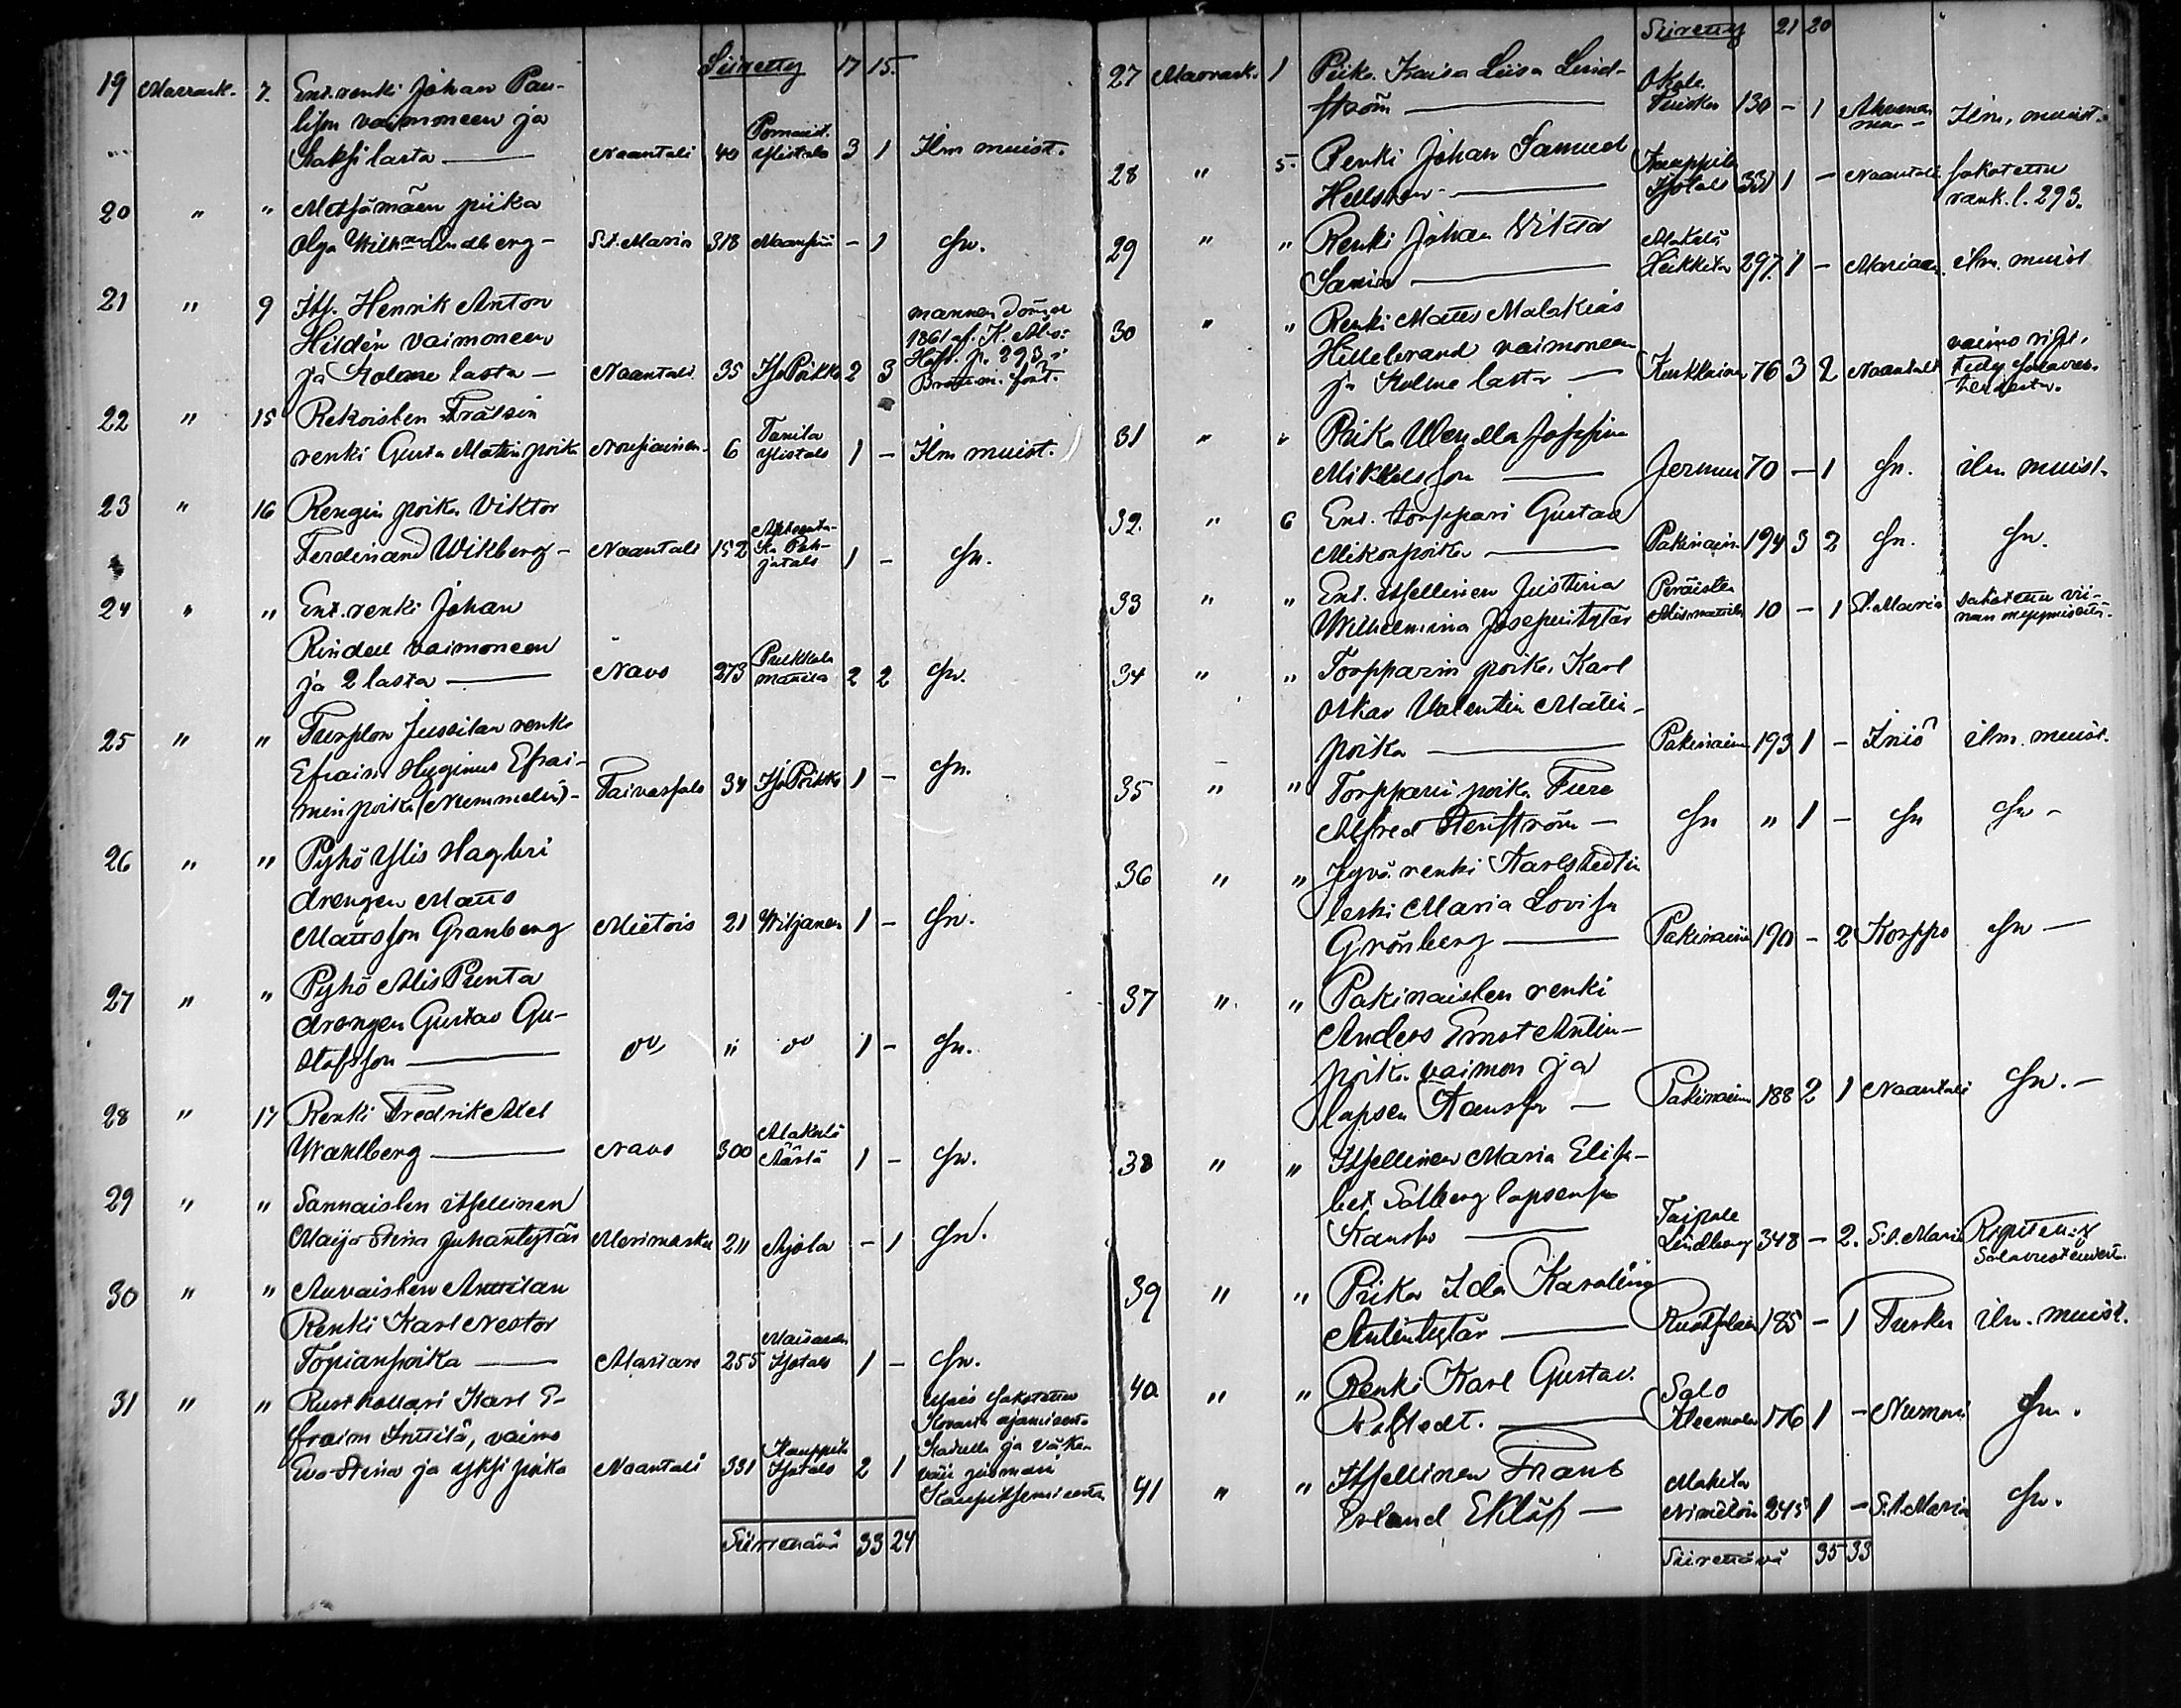 Siirretty 17 15.
19 Marrask. 7. Ent. renki Johan Pau-
lison vaimoneen ja
Kaksi lasta — Naantali 40 Ylistalo 3 1 Ilm muist.
20 " " Metsämäen piika
Olga Wilh:na Lindberg – S:t Maria 318 – 1 Sn.
21 " 9 Its. Henrik Anton
Hildén vaimoneen
ja Kolme lasta – Naantali 35 Iso Peikko 2 3
mannen dömd
1861 af K. Åbo
Hofr. p. 293 i
22 " 15 Rekoisten Frälsin
renki Gusta Matin poika Nousiainen 6 Tanila Ylistalo 1 – Ilm muist.
23 " 16 Rengin poika Viktor
Ferdinand Wikberg – Naantali 152 1 – Sn.
24 " " Ent. renki Johan
Rindell vaimoneen
ja 2 lasta — Navo 273 Pukkila Mattila 2 2 Sn.
25 " " Jussilan renki
Efraim Hyginus Efrai-
min poika (Nummelin) – Taivassalo 34 Iso Peikko 1 – Sn.
26 " " Pyhö Ylis Hagbri
drengen Matts
Mattsson Granberg Mietois 21 Wiljanen 1 – Sn.
27 " " Pyhö Alis Punta
drengen Gustav Gu-
stafsson — " 1 – Sn.
28 " 17 Renki Fredrik Axel
Wahlberg — Navo 300 1 – Sn.
29 " " Sannaisten itsellinen
Maija Stina Juhantytär Merimasku 211 Ajola – 1 Sn.
30 " " Auvaisten Anttilan
Renki Karl Nestor
Topianpoika — Marian 255 Isotalo 1 – Sn.
31 " " Rusthollari Karl E-
fraim Anttila, vaimo
Eva Stina ja yksi poika Naantali 331 Kauppila Isotalo 2 1
Mies sakotettu
Kovasta ajamisesta
Kadulla ja väke-
väin juomain
Kaupitsemisesta
Siirrettävä 33 24
Siirretty 21 20
27 Marrask. 1 Piika Kaisa Liisa Lind-
ström — 130 – 1 Ahvenan maa – Ilm. muist.
28 " 5. Renki Johan Samuel
Hellsten — Kauppila Isotalo 331 1 – Naantali Sakotettu
rank. l. 293.
29 " " Renki Johan Viktor
— Heikkilä 297 1 – Marian ilm. muist
30 " " Renki Matts Malakias
Hillebrand vaimoneen
ja Kolme lasta — Karklainen 76 3 2 Naantali
31 " " Piika Wendla Josefina
Mikkelsson — Jermu 70 – 1 Sn. ilm muist.
32. " 6 Ent. torppari Gustav
Mikonpoika — Pakinain. 194 3 2 Sn. Sn.
33 " " Ent. itsellinen Justina
Wilhelmina Josepintytär 10 – 1 St. Maria sakotettu vii-
nan myymisestä.
34 " " Torpparin poika Karl
Oskar Valentin Matin-
poika — Pakinainen 193 1 – Iniö ilm. muist.
35 " " Torpparin poika Ture
Alfred Stenström — Sn " 1 – Sn Sn –
36 " " Jyvä renki Karlstedtin
leski Maria Lovisa
Grönberg — Pakinainen 190 – 2 Korppo Sn —
37 " " Pakinaisten renki
Anders Ernst Antin-
poika vaimon ja
lapsen Kanssa — Pakinainen 188 2 1 Naantali Sn. –
38 " " Itsellinen Maria Elisa-
bet Solberg lapsensa
Kanssa — Taipale Lindberg 348 – 2. S:t. Maria
39 " " Piika Ida Karolina
Antintytär — 185 – 1 Turku ilm. muist.
40 " " Renki Karl Gustav
— Salo Kleemola 176 1 – Nummi Sn.
41 " " Itsellinen Frans
Erland Eklöf — 245 1 – S:t. Maria Sn.
Siirrettävä 35 33